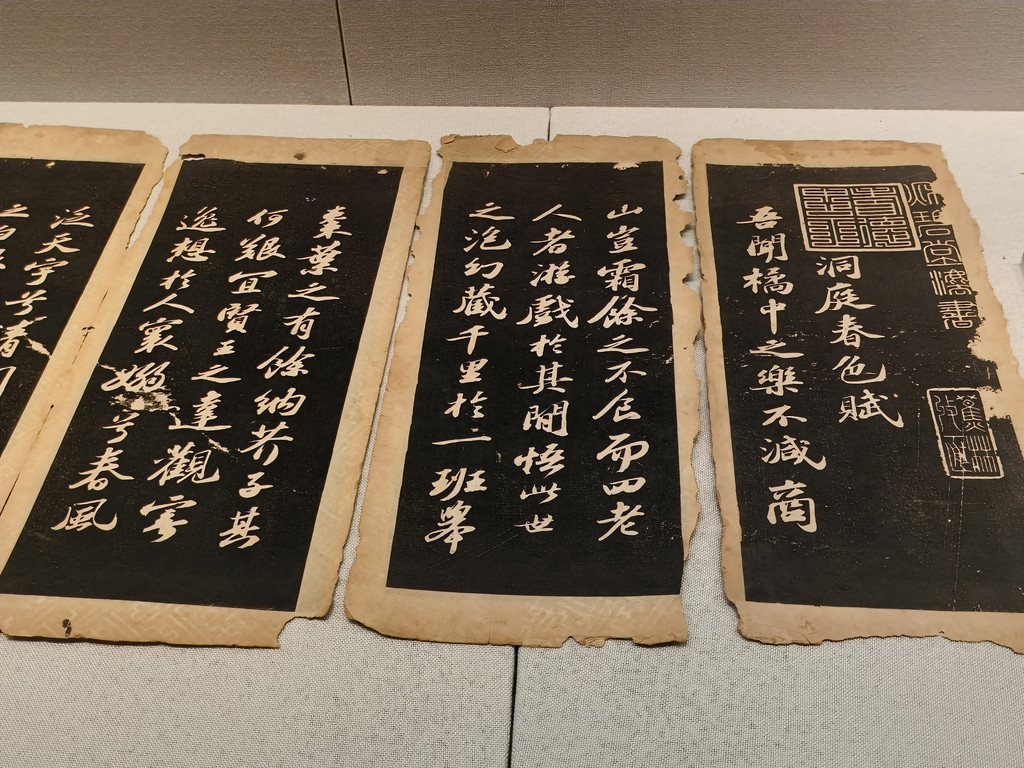 堂灋書
洞庭春色賦
吾聞橘中之樂不減商
山豈霜餘之不食而四老
人者游戲於其間悟此世
之泡幻藏千里於一班舉
棗葉之有餘納芥子其
何艱宜賢王之達觀寄
逸想於人寰嫋兮春風
泛天宇兮清
之白